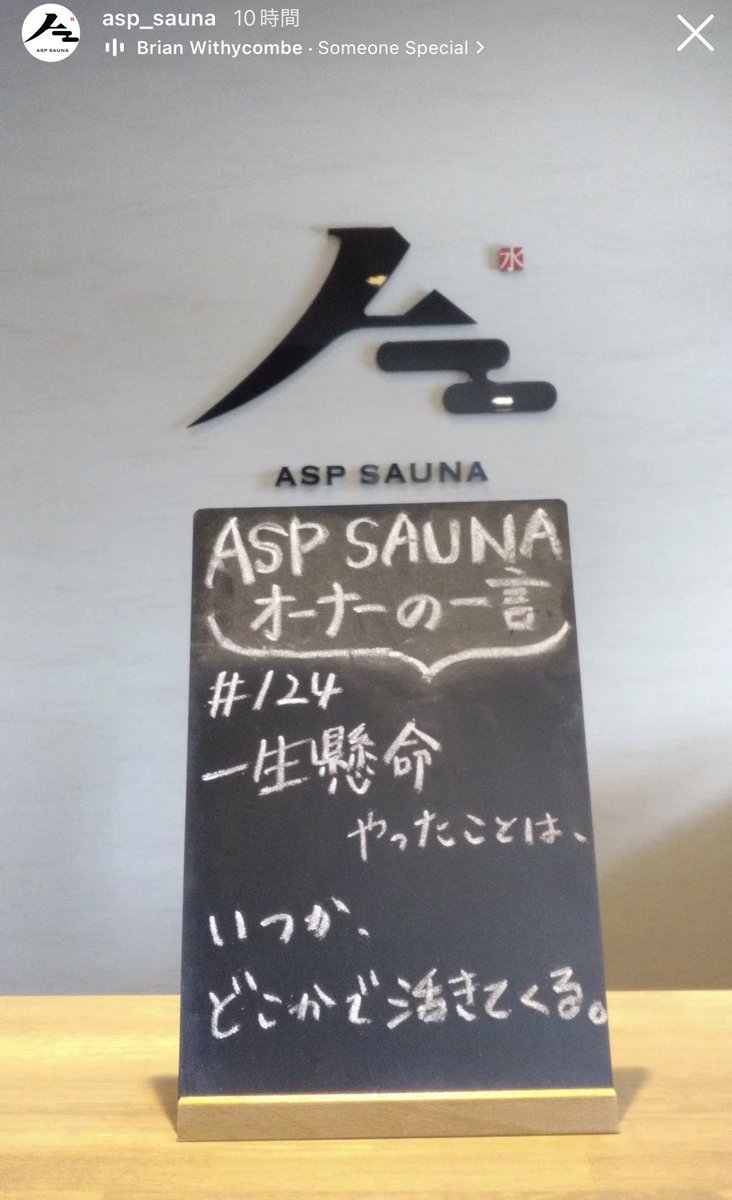 asp_sauna 10時間
Brian Withycombe · Someone Special >
ASP SAUNA
水
ASP SAUNA
ASP SAUNA
オーナーの一言
#124
一生懸命
やったことは、
いつか、
どこかで活きてくる。